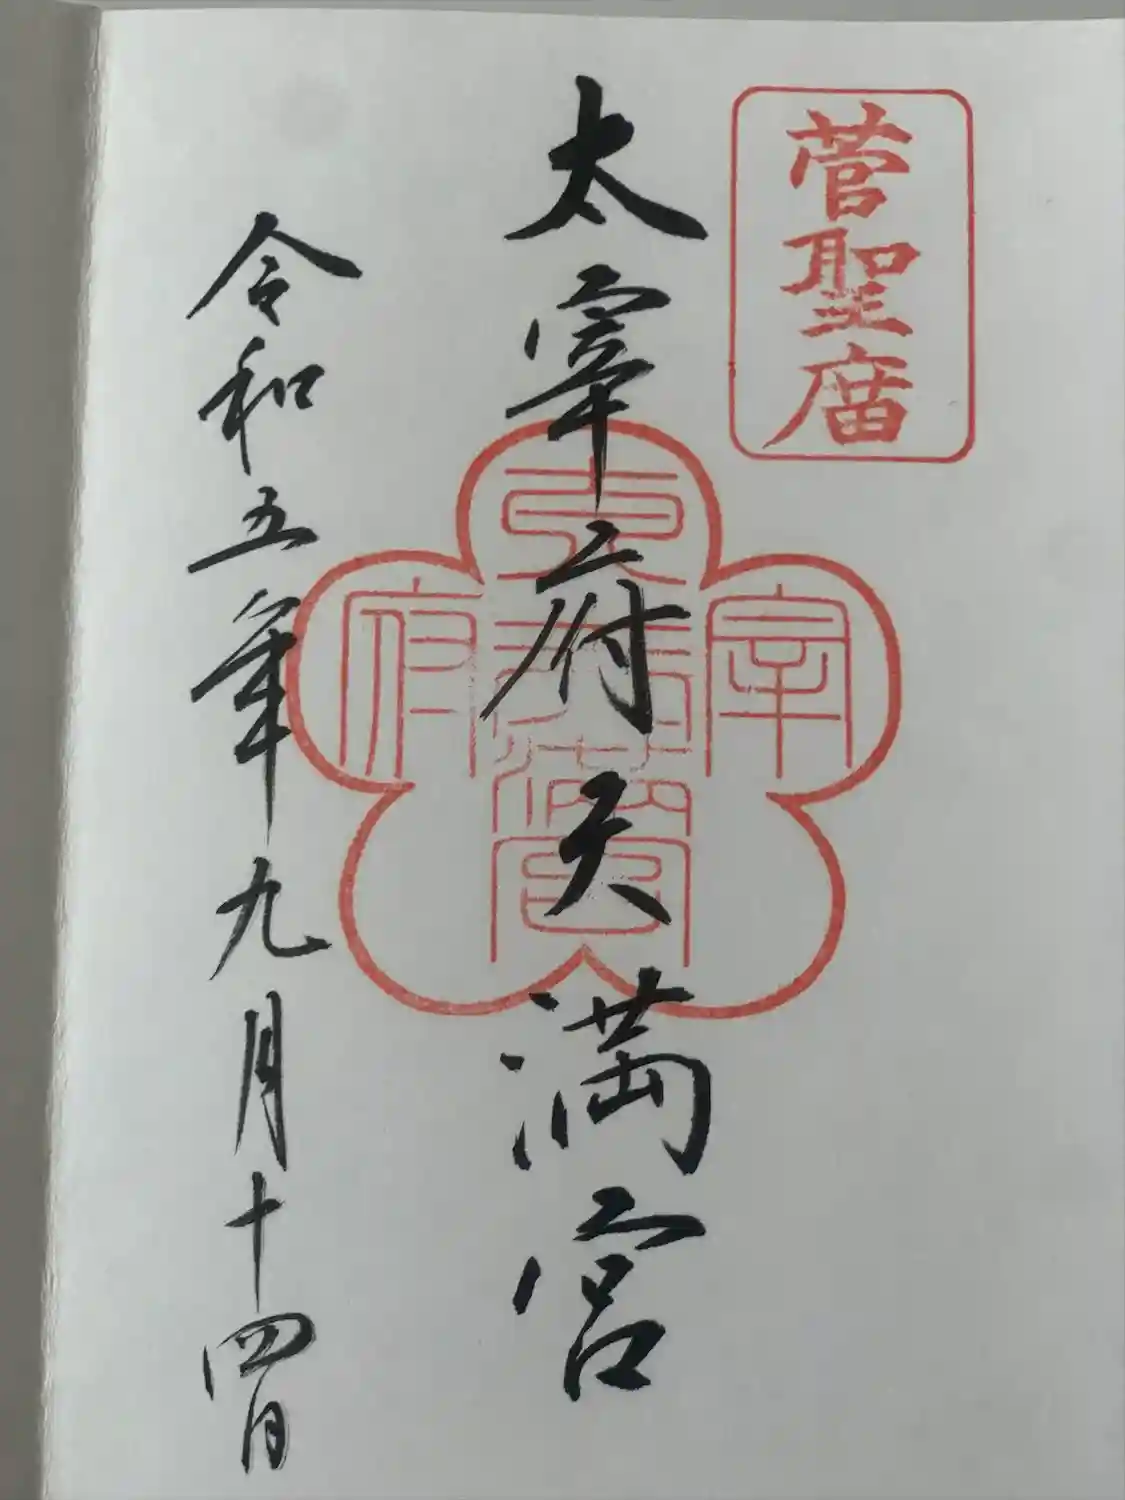 菅聖庿
太宰府天満宮
太宰府天満宮
令和五年九月十四日